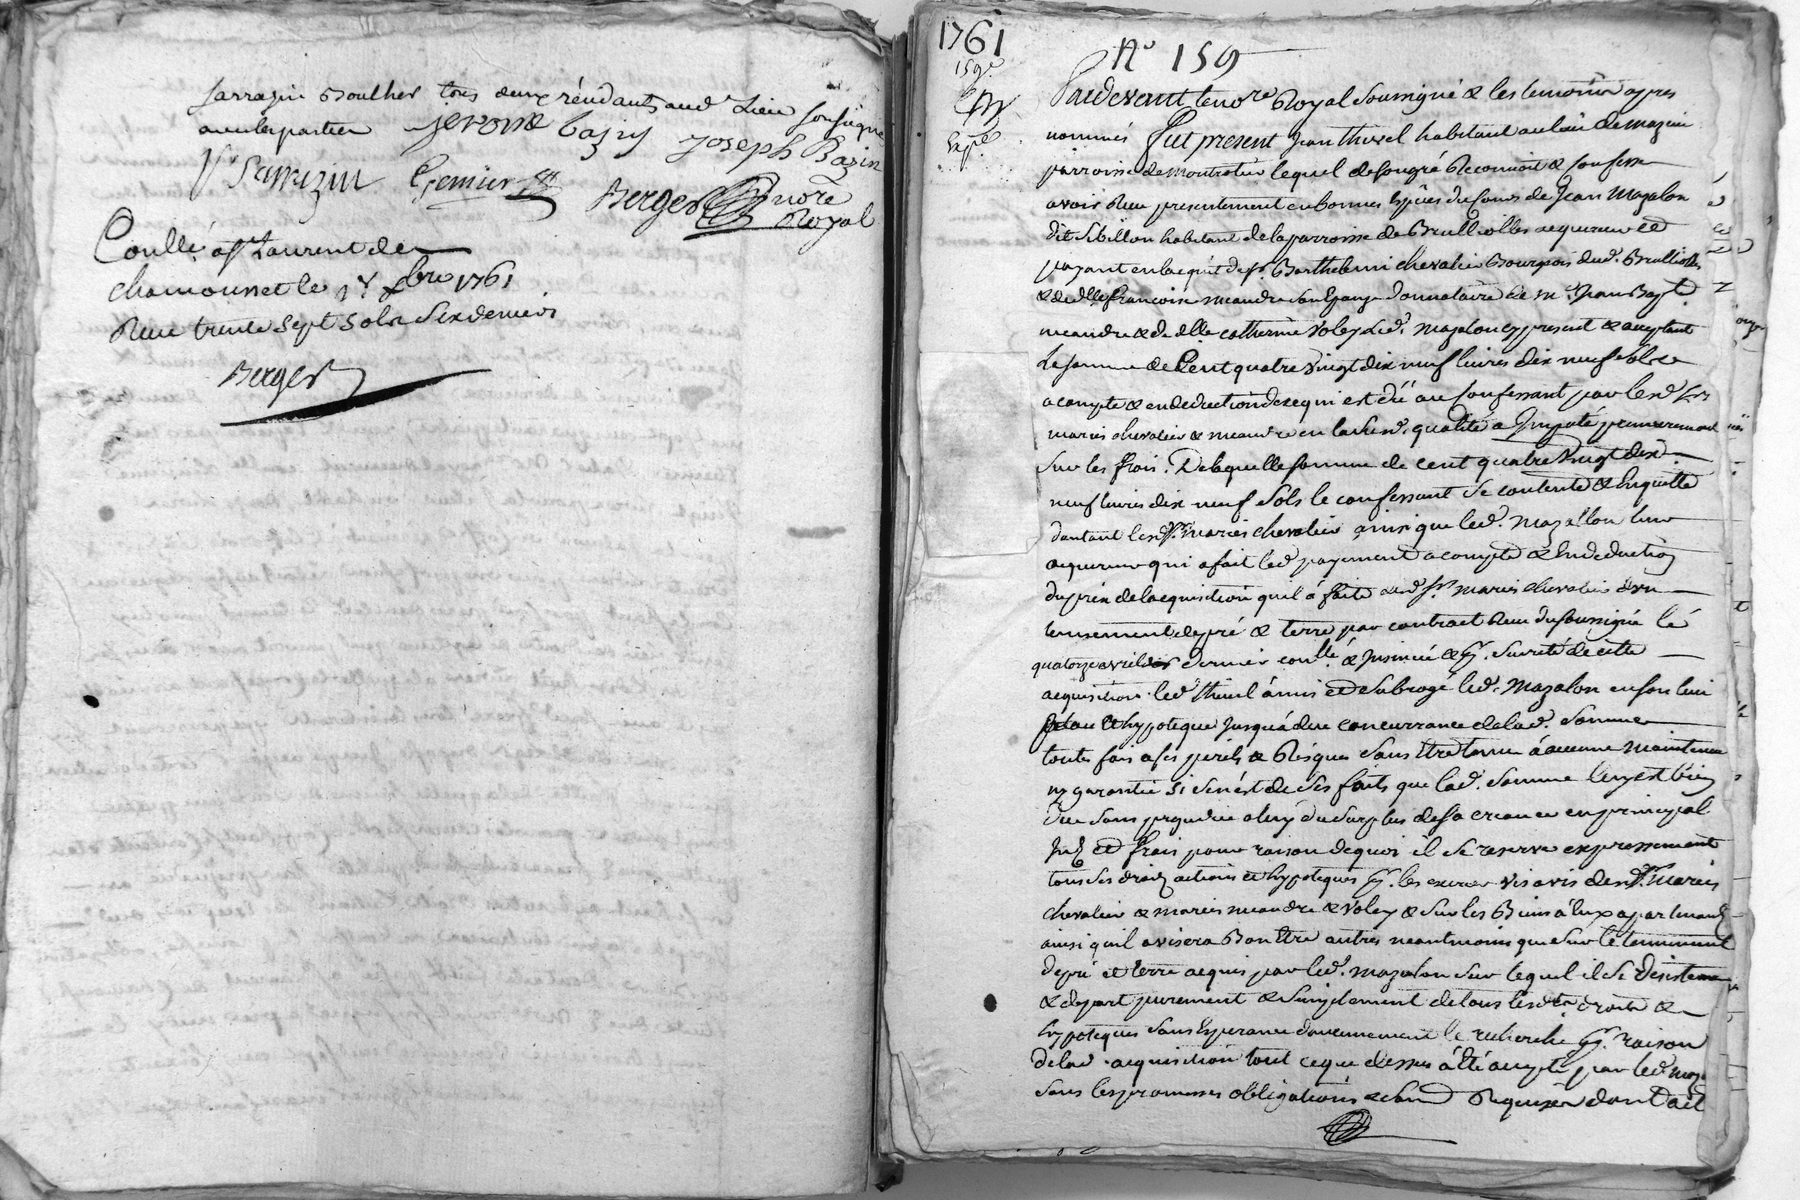 Sarrazin Boulher tous deux résidants aud. Lieu soussignés
avec les parties jerome bazin Joseph Bazin
Sarrazin Gemier Berger nore
Royal
Conllé a St Laurent de
chamousset le 1761
Reçu trente sept sols six deniers
Berger
1761
159e
Expée
No 159
Pardevant le nore Royal soussigné & les temoins apres
nommés fut present Jean thivel habitant au lieu de mazin
parroisse de montrotier lequel de son gré Reconnoit & confesse
avoir Reçu presentement en bonnes Espèces du sons de Jean Mazalon
dit Sibillon habitant de la parroisse de Brullioles acquereur et
payant en lacquit de sr. Barthelemi chevalier Bourgeois dud. Brullioles
& de dlle francoise meandre son Epouse donnataire de mr. Jean Bapt.
meandre & de dlle catherine Voley Led. Mazalon cy present & acceptant
La somme de Cent quatre vingt dix neuf livres dix neuf sols
a compte & en deduction de ce qui est dû au confessant par lesd. srs
mariés chevalier & meandre en lad. qualité a Imputé premierement
sur les frais. De laquelle somme de cent quatre vingt dix
neuf livres dix neuf sols le confessant se contente & En quitte
dautant lesd. mariés chevalier ainsi que led. Mazallon leur
acquereur qui a fait led. payement a compte & En deduction
du prix de lacquisition quil á faite desd. srs mariés chevalier dun
tenement de pré & terre par contract Reçu du soussigné le
quatorze avril dernier conllé. & Insinué & pr. sureté de cette
acquisition led. thivel á mis et subrogé led. Mazalon en son lieu
place et hypoteque Jusquá due concurrance de lad. somme
toutes fois a ses perils & Risques sans Etre tenu á aucune maintenue
ny garantie si cen'est de ses faits que lad. somme luy est bien
due sans prejudice a luy du surplus de sa creance en principal
et frais pour raison de quoi il se reserve expressement
tous ses droits actions et hypoteques pr. les exercer vis avis desd. mariés
chevalier & mariés meandre & Voley & sur les Biens a Eux apartenants
ainsi quil avisera Bon Etre autres neantmoins que sur le tenement
de pré et terre acquis par led. mazalon sur lequel il se desiste
& depart purement & simplement de tous lesd. droits &
hypoteques sans Esperance daucunement le recherche pr. raison
de lad. acquisition tout ce que dessus á Eté accepté par led. maz.
sous les promesses obligations Requises dont acte